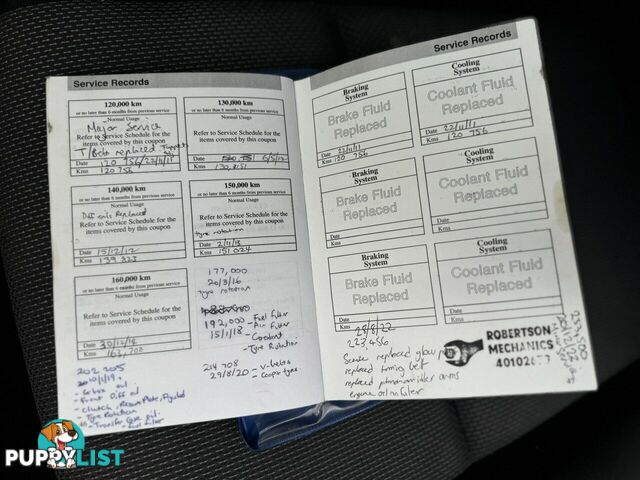 Service Records
120,000 km
or no later than 6 months from previous service
Normal Usage
Major Service
Refer to Service Schedule for the
items covered by this coupon
T/Belt replaced
Date 120 756/22/11/11
Kms 120 756
130,000 km
or no later than 6 months from previous service
Normal Usage
Refer to Service Schedule for the
items covered by this coupon
Date
Kms
140,000 km
or no later than 6 months from previous service
Normal Usage
Replaced
Refer to Service Schedule for the
items covered by this coupon
Date 15/12/12
Kms 139 323
150,000 km
or no later than 6 months from previous service
Normal Usage
Refer to Service Schedule for the
items covered by this coupon
tyre rotation
Date 2/11/13
Kms 151 024
160,000 km
or no later than 6 months from previous service
Normal Usage
Refer to Service Schedule for the
items covered by this coupon
Date 30/12/14
Kms 163,700
177,000
20/3/16
tyre rotation
192,000 - Fuel filter
15/1/18 - Air Filter
- Coolant
- Tyre Rotation
214 708 - V-belts
29/8/20 - Cooper tyres
202 205
20/01/19
- Gebox oil
- Front Diff oil
- Clutch, Pressure Plate, Flywheel
- Tyre Rotation
- Transfer Case oil
- Fuel filter
Service Records
Braking
System
Brake Fluid
Replaced
Date 22/11/11
Kms 120 756
Cooling
System
Coolant Fluid
Replaced
Date 22/11/11
Kms 120 756
Braking
System
Brake Fluid
Replaced
Date
Kms
Cooling
System
Coolant Fluid
Replaced
Date
Kms
Braking
System
Brake Fluid
Replaced
Date
Kms
Cooling
System
Coolant Fluid
Replaced
Date
Kms
29/8/22
227,456
Service replaced glow
replaced timing belt
replaced pitman an idler arms
engine oil filter
ROBERTSON
MECHANICS
PUPPYLIST